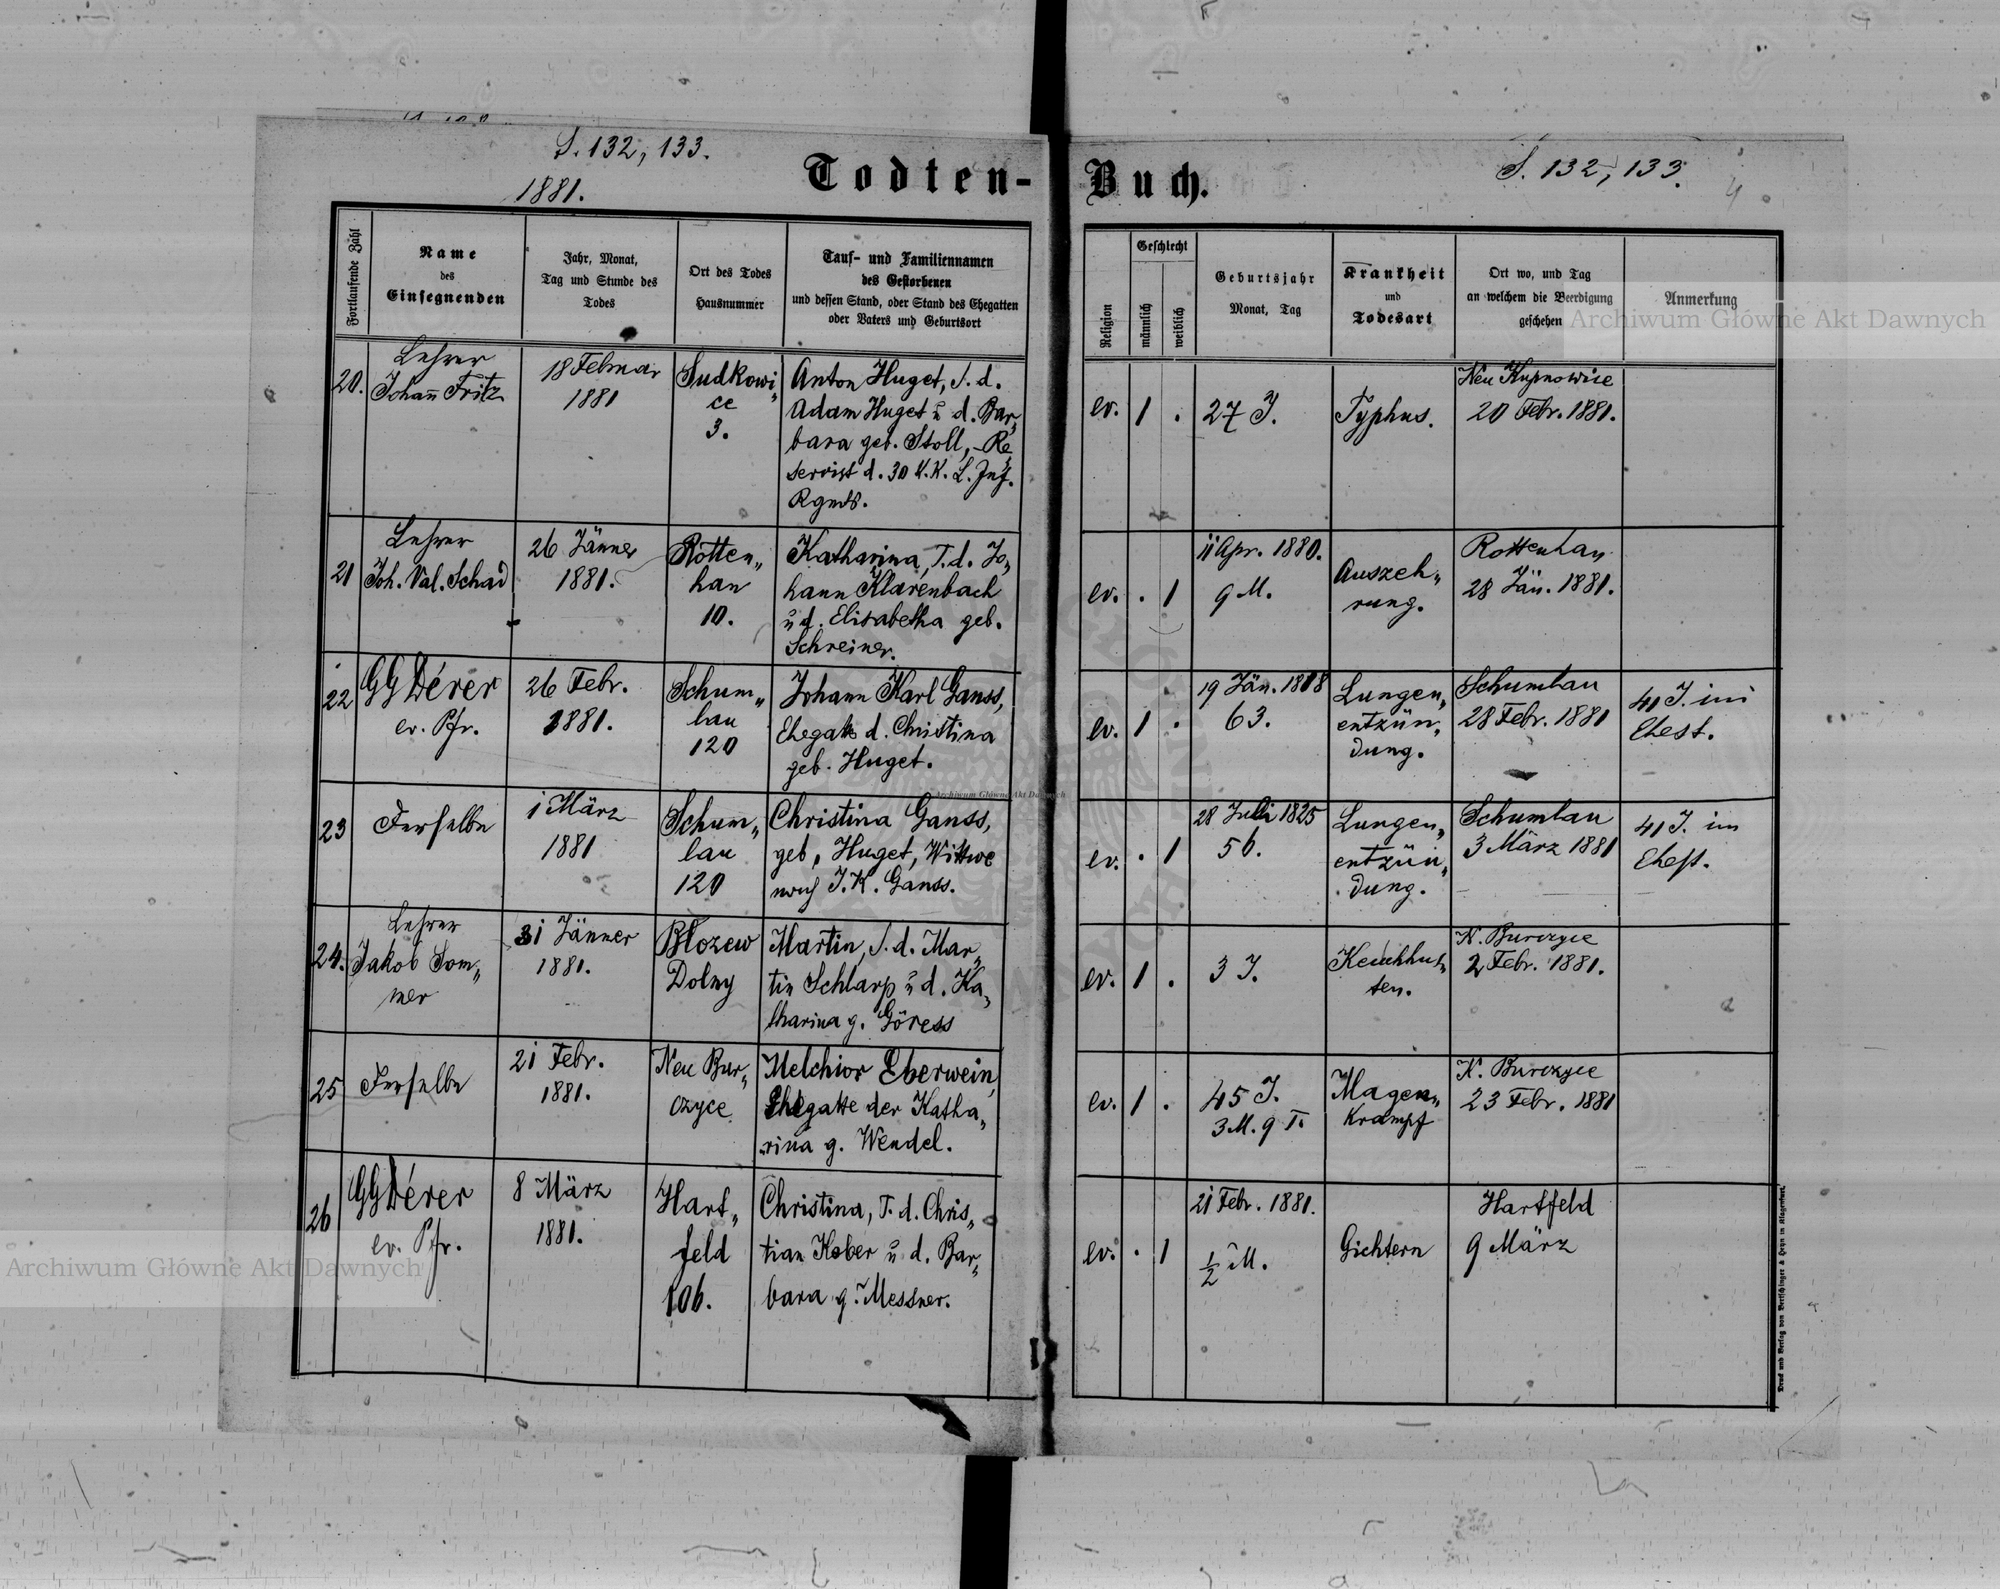 S. 132, 133.
1881.
Todten-
Buch.
S. 132, 133.
Fortlaufende Zahl
Name
des
Einsegnenden
Jahr, Monat,
Tag und Stunde des
Todes
Ort des Todes
Hausnummer
Tauf- und Familiennamen
des Gestorbenen
und dessen Stand, oder Stand des Ehegatten
oder Vaters und Geburtsort
Religion
Geschlecht
männlich
weiblich
Geburtsjahr
Monat, Tag
Krankheit
und
Todesart
Ort wo, und Tag
an welchem die Beerdigung
geschehen
Anmerkung
20.
Lehrer
Johann Fritz
18 Februar
1881
Sudkowi„
ce
3.
Anton Huget, S. d.
Adam Huget u. d. Bar„
bara geb. Stoll, Re„
servist d. 30 K. K. L. Inf.
Rgmds.
ev.
1
.
27 J.
Typhus.
Neu Kupnowice
20 Febr. 1881.
21
Lehrer
Joh. Val. Schad
26 Jänner
1881.
Rotten„
han
10.
Katharina, T. d. Jo„
hann Klarenbach
u. d. Elisabetha geb.
Schreiner.
ev.
.
1
11 Apr. 1880.
9 M.
Auszeh„
rung.
Rottenhan
28 Jän. 1881.
22
GGDérer
ev. Pfr.
26 Febr.
1881.
Schum„
lau
120
Johann Karl Ganss,
Ehegatte d. Christina
geb. Huget.
ev.
1
.
19 Jän. 1818
63.
Lungen„
entzün„
dung.
Schumlau
28 Febr. 1881
41 J. im
Ehest.
23
Derselbe
1 März
1881
Schum„
lau
120
Christina Ganss,
geb. Huget, Wittwe
nach J. K. Ganss.
ev.
.
1
28 Juli 1825
56.
Lungen„
entzün„
dung.
Schumlau
3 März 1881
41 J. im
Ehest.
24.
Lehrer
Jakob Som„
mer
31 Jänner
1881.
Blozew
Dolny
Martin, S. d. Mar„
tin Schlarp u. d. Ka„
tharina g. Göress
ev.
1
.
3 J.
Keuchhus„
ten.
N. Burczyce
2 Febr. 1881.
25
Derselbe
21 Febr.
1881.
Neu Bur„
czyce
Melchior Eberwein,
Ehegatte der Katha„
rina g. Wendel.
ev.
1
.
45 J.
3 M. 9 T.
Magen„
krampf
N. Burczyce
23 Febr. 1881
26
GGDérer
ev. Pfr.
8 März
1881.
Hart„
feld
106.
Christina, T. d. Chris„
tian Kober u. d. Bar„
bara g. Messner.
ev.
.
1
21 Febr. 1881.
½ M.
Gichtern
Hartfeld
9 März
Druck und Verlag von Bertschinger & Heyn in Klagenfurt.
Archiwum Główne Akt Dawnych
Archiwum Główne Akt Dawnych
Archiwum Główne Akt Dawnych